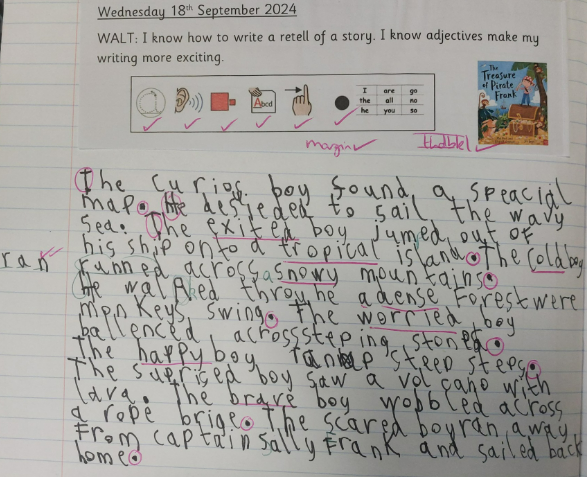 Wednesday 18th September 2024
WALT: I know how to write a retell of a story. I know adjectives make my
writing more exciting.
Abcd
I are go
the all no
he you so
The
Treasure
of Pirate
Frank
margin
The curios boy found a speacial
map. He desieded to sail the wavy
sea. The exited boy jumed out of
his ship onto a tropical island. The cold boy
ran
runned across a snowy mountains.
He walked throuhe a dense forest were
monkeys swing. The worried boy
ballenced across stepping stones.
The happy boy ran up steep steps.
The suprised boy saw a volcano with
lava. The brave boy wobbled across
a rope brige. The scared boy ran away
from captain sally Frank and sailed back
home.